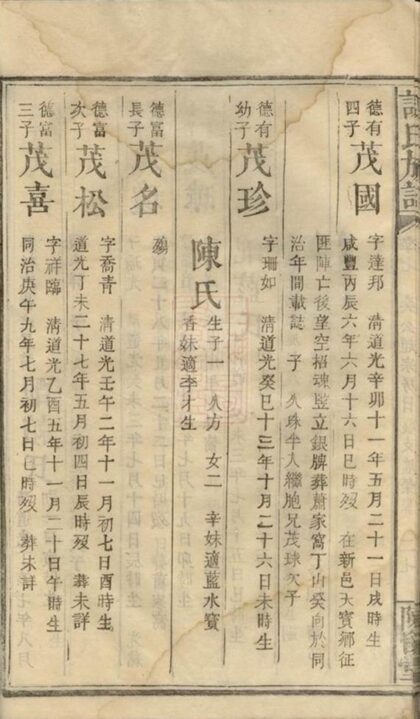 德有
四子
茂國
字達邦　清道光辛卯十一年五月二十一日戌時生
咸豐丙辰六年六月十六日巳時歿　在新邑天寶鄉征
匪陣亡後望空招魂竪立銀牌葬蕭家窩丁山癸向於同
治年間載誌　子　久珠半入繼胞兄茂球次子
德有
幼子
茂珍
字珊如　清道光癸巳十三年十月二十六日未時生
陳氏
生子一　久方　女二　辛妹適藍水寶
香妹適李才生
德富
長子
茂名
殤
德富
次子
茂松
字喬青　清道光壬午二年十一月初七日酉時生
道光丁未二十七年五月初四日辰時歿　葬未詳
德富
三子
茂喜
字祥臨　清道光乙酉五年十一月二十日午時生
同治庚午九年七月初七日巳時歿　葬未詳